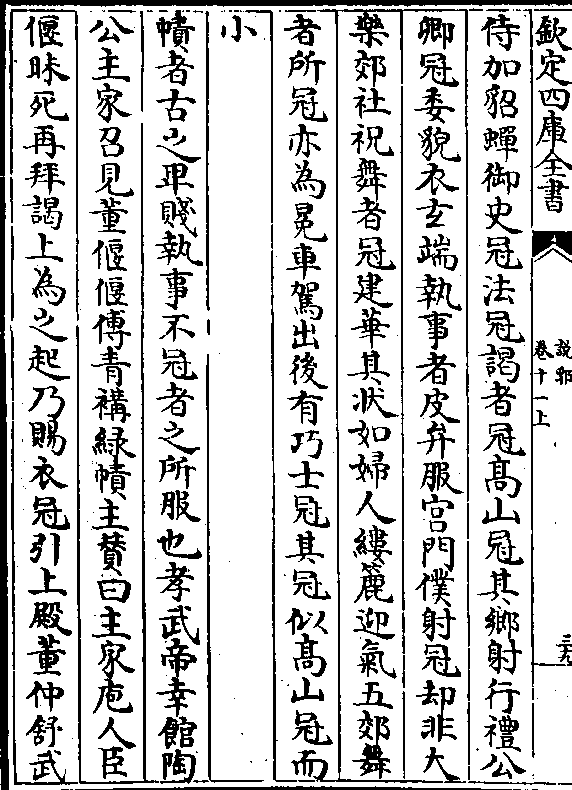 欽定四庫全書
說郛
卷十一上
三九
侍加貂蟬御史冠法冠謁者冠髙山冠其鄉射行禮公
卿冠委貌衣玄端執事者皮弁服宮門僕射冠却非大
樂郊社祝舞者冠建華其状如婦人縷簏迎氣五郊舞
者所冠亦為冕車駕出後有巧士冠其冠似髙山冠而
小
幘者古之卑賤執事不冠者之所服也孝武帝幸館陶
公主家召見董偃偃傅青褠綠幘主賛曰主家庖人臣
偃昧死再拜謁上為之起乃賜衣冠引上殿董仲舒武